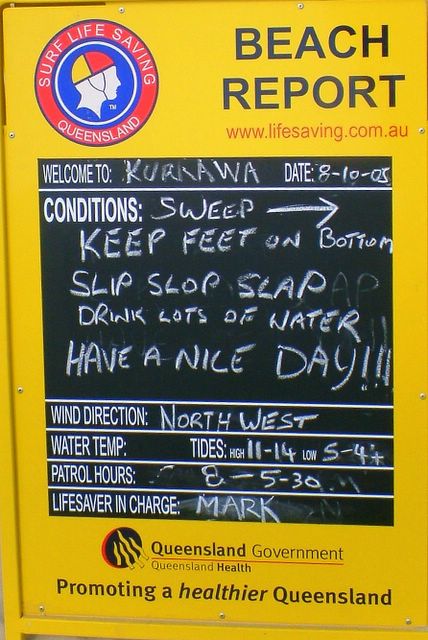 SURF LIFE SAVING
QUEENSLAND
TM
BEACH
REPORT
www.lifesaving.com.au
WELCOME TO: KURRAWA DATE: 8-10-05
CONDITIONS: SWEEP →
KEEP FEET ON BOTTOM
SLIP SLOP SLAP
DRINK LOTS OF WATER
HAVE A NICE DAY!!!
WIND DIRECTION: NORTH WEST
WATER TEMP: TIDES: HIGH 11-14 LOW 5-4
PATROL HOURS: 8-5-30
LIFESAVER IN CHARGE: MARK
Queensland Government
Queensland Health
Promoting a healthier Queensland